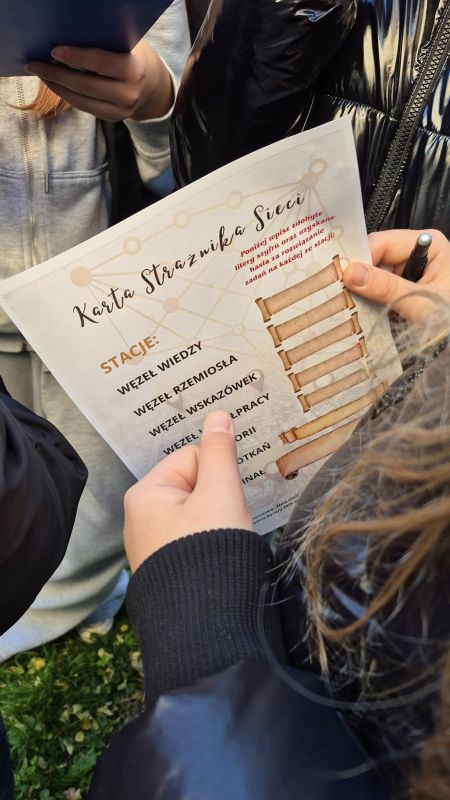 Karta Strażnika Sieci
Poniżej wpisz zdobyte
litery szyfru oraz uzyskane
hasła za rozwiązanie
zadań na każdej ze stacji:
STACJE:
WĘZEŁ WIEDZY
WĘZEŁ RZEMIOSŁA
WĘZEŁ WSKAZÓWEK
WĘZEŁ ŁPRACY
ORII
OTKAŃ
INAŁ